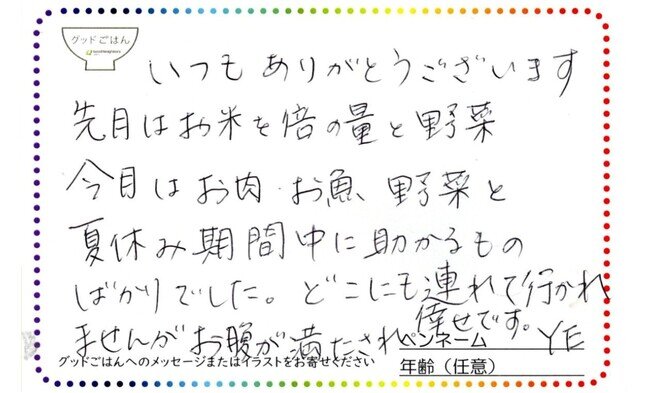 グッドごはん
いつもありがとうございます
先月はお米を倍の量と野菜
今月はお肉・お魚、野菜と
夏休み期間中に助かるもの
ばかりでした。どこにも連れて行かれ
ませんがお腹が満たされ幸せです。
ペンネーム YE
グッドごはんへのメッセージまたはイラストをお寄せください
年齢（任意）